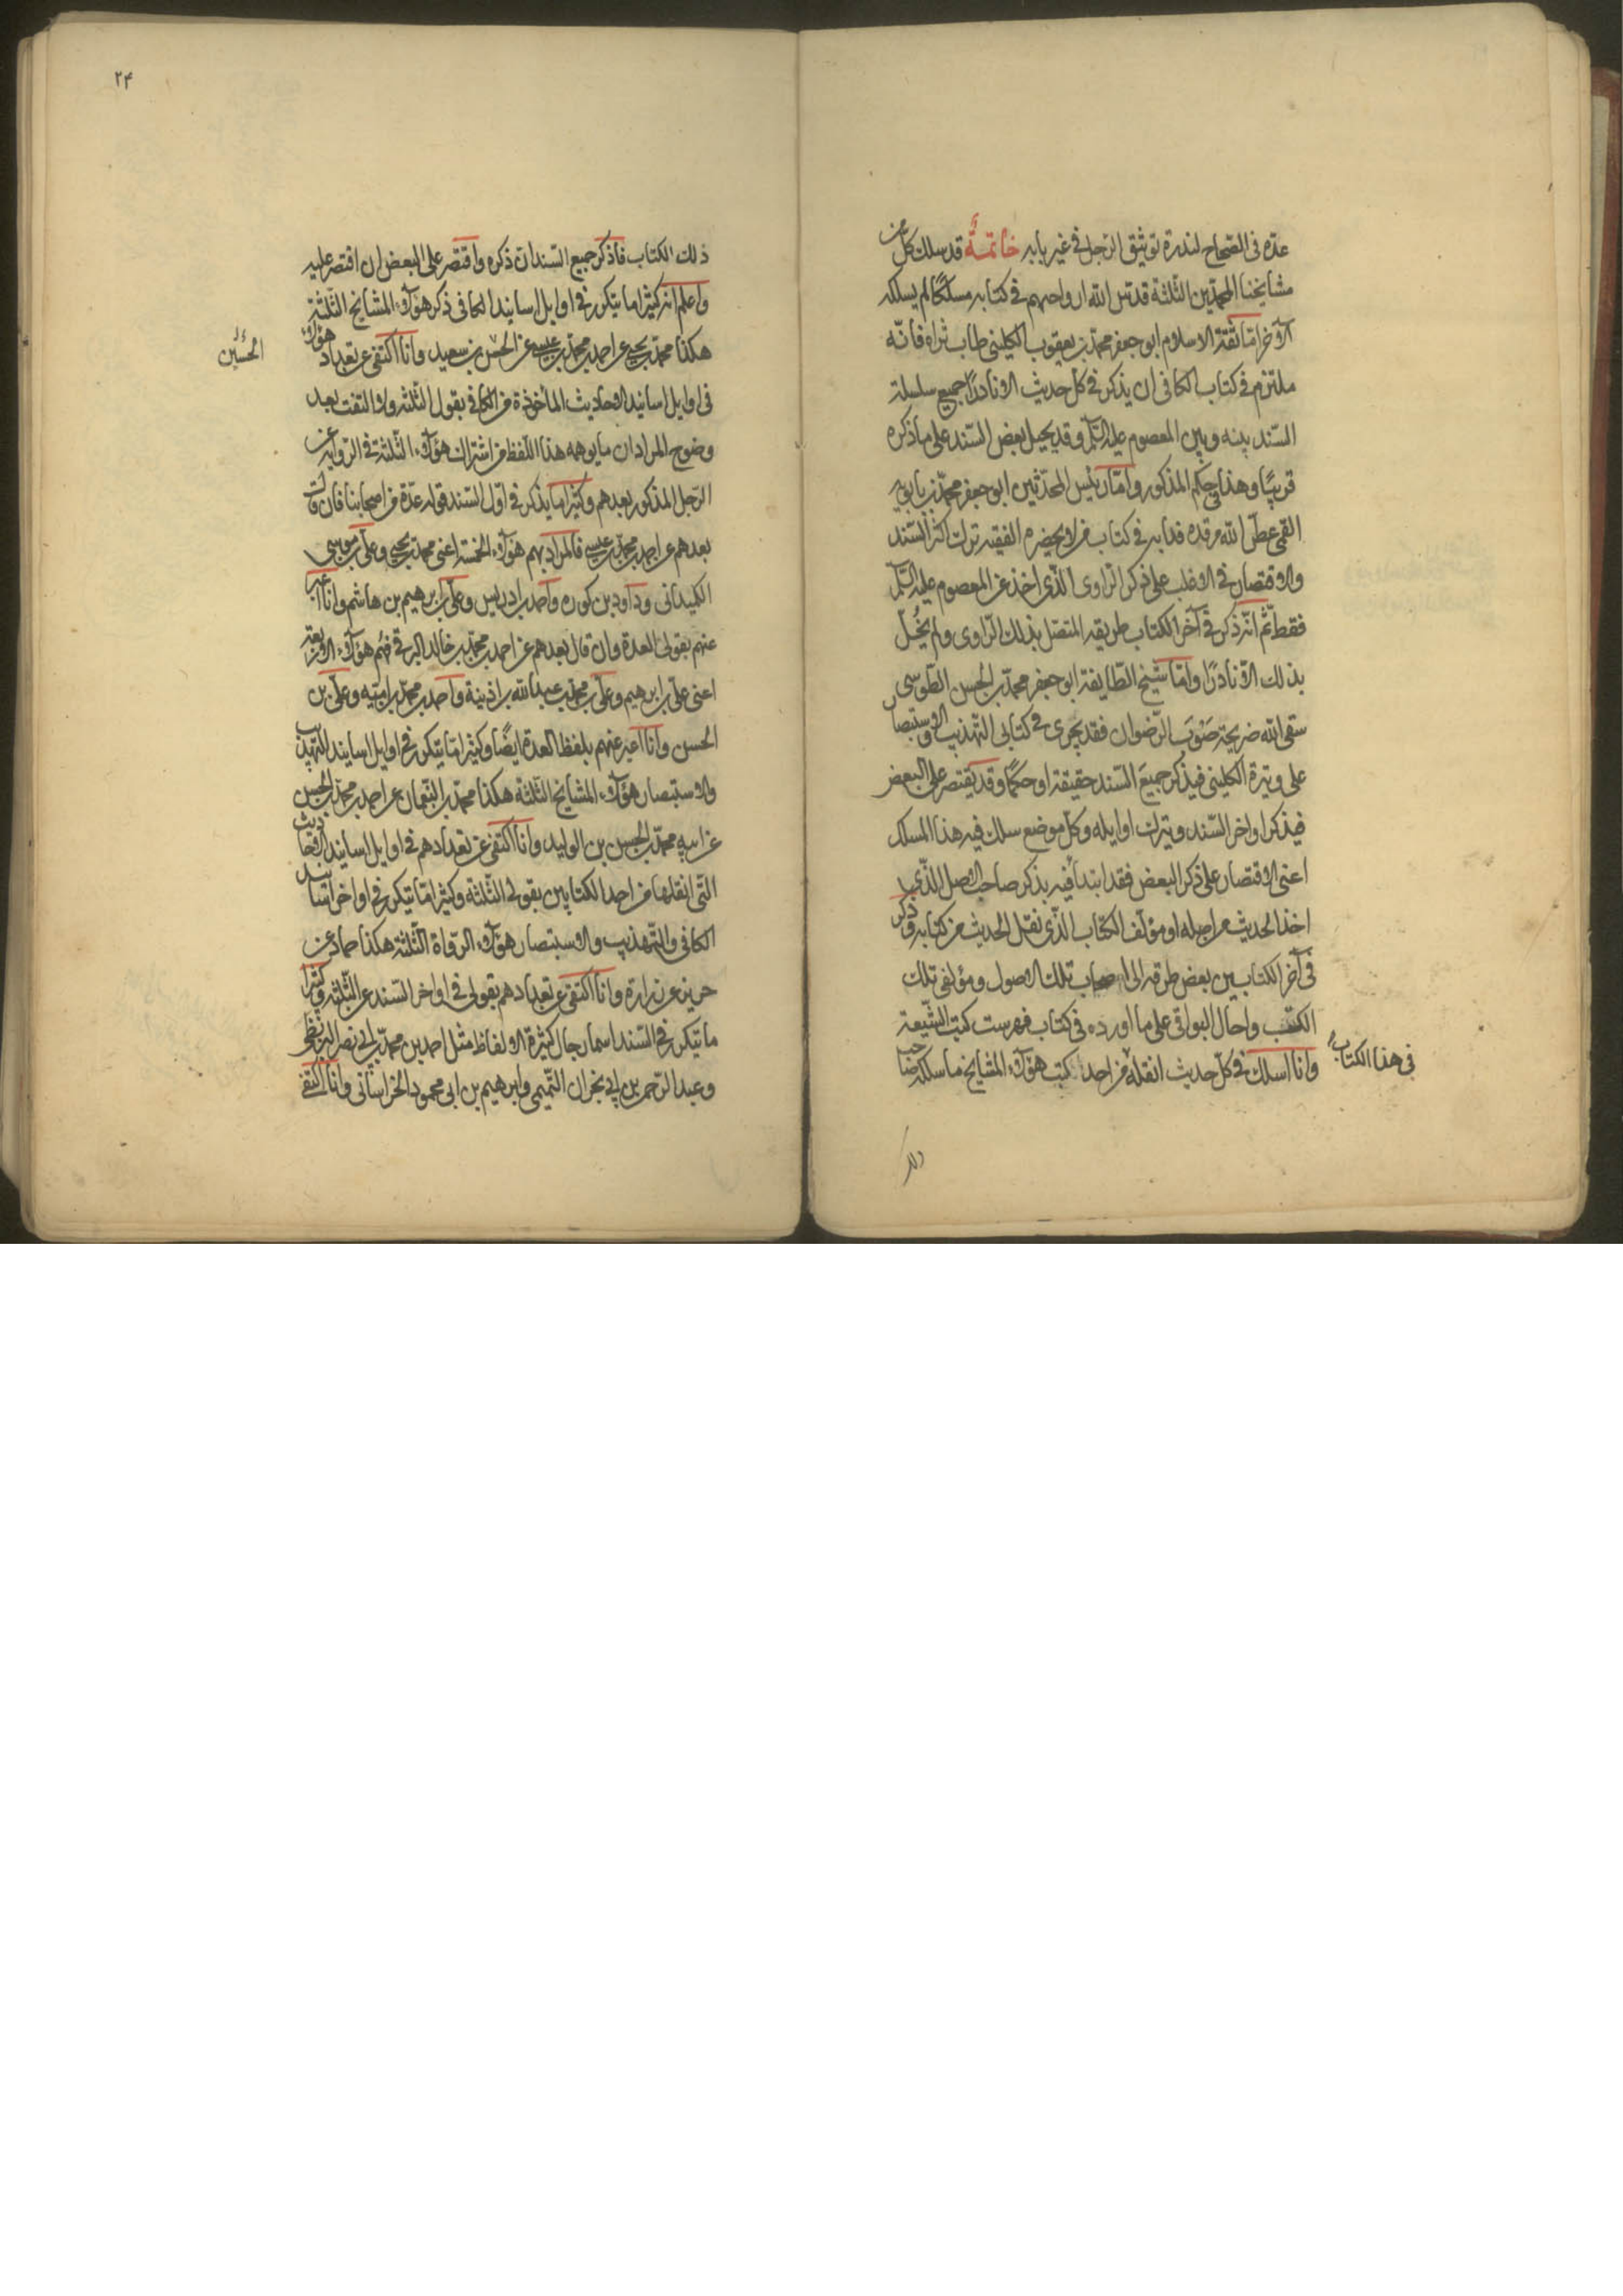 عدّه فى الصّحاح لندرة توثيق الرّجل فى غير بابه خاتمة قد سلك كل من
مشايخنا المحمّدين الثّلثة قدّس الله ارواحهم فى كتابه مسلكًا لم يسلكه
الآخر امّا ثقة الاسلام ابو جعفر محمّد بن يعقوب الكلينى طاب ثراه فانّه
ملتزم فى كتاب الكافى ان يذكر فى كلّ حديث الا نادرًا جميع سلسلة
السّند بينه وبين المعصوم عليه السّلم وقد يحيل بعض السّند على ما ذكره
قريبًا وهذا فى حكم المذكور وامّا رئيس المحدّثين ابو جعفر محمّد بن بابويه
القمى عطّر الله مرقده فدابه فى كتاب من لا يحضره الفقيه ترك اكثر السّند
والاقتصار فى الاغلب على ذكر الرّاوى الّذى اخذ عن المعصوم عليه السّلم
فقط ثمّ انّه ذكر فى آخر الكتاب طريقه المتّصل بذلك الرّاوى ولم يخلّ
بذلك الّا نادرًا وامّا شيخ الطّايفة ابو جعفر محمّد بن الحسن الطّوسى
سقى الله ضريحه صَوْبَ الرّضوان فقد يجرى فى كتابى التّهذيب والاستبصار
على وتيرة الكلينى فيذكر جميع السّند حقيقة او حكمًا وقد يقتصر على البعض
فيذكر اواخر السّند ويترك اوايله وكلّ موضع سلك فيه هذا المسلك
اعنى الاقتصار على ذكر البعض فقد ابتدأ فيه بذكر صاحب الاصل الّذى
اخذ الحديث من اصله او مؤلّف الكتاب الّذى نقل الحديث من كتابه وذكر
فى آخر الكتابين بعض طرقه الى اصحاب تلك الاصول ومؤلفى تلك
الكتب واحال البواقى على ما اورده فى كتاب فهرست كتب الشّيعة
وانا اسلك فى كلّ حديث انقله من احد كتب هؤلآء المشايخ ما سلكه صاحب
فى هذا الكتاب
ذلك
٢٤
ذلك الكتاب فاذكر جميع السّند ان ذكره واقتصر على البعض ان اقتصر عليه
واعلم انه كثيرا ما يتكرر فى اوايل اسانيد الكافى ذكر هؤلآء المشايخ الثّلثة
هكذا محمّد بن يحيى عن احمد بن محمّد بن عيسى عن الحسين بن سعيد وانا اكتفى عن تعداد هؤلاء
الحسين
فى اوايل اسانيد الاحاديث المأخوذة من الكافى بقولى الثلثه ولا التفت بعد
وضوح المراد ان ما يوهمه هذا اللّفظ من اشتراك هؤلآء الثّلثة فى الرّواية عن
الرّجل المذكور بعدهم وكثيرا ما يذكر فى اوّل السّند قوله عدّة من اصحابنا فان قال
بعدهم عن احمد بن محمّد بن عيسى فالمراد بهم هؤلآء الخمسة اعنى محمّد بن يحيى وعلى بن موسى
الكميدانى وداود بن كوره واحمد بن ادريس وعلى بن ابرهيم بن هاشم وانا اعبر
عنهم بقولى العدة وان قال بعدهم عن احمد بن محمّد بن خالد البرقى فهم هؤلآء الاربعة
اعنى على بن ابرهيم وعلى بن محمّد بن عبد الله بن اذينة واحمد بن محمّد بن اميّه وعلى بن
الحسن وانا اعبر عنهم بلفظ العدة ايضًا وكثيرا ما يتكرر فى اوايل اسانيد التّهذيب
والاستبصار هؤلآء المشايخ الثّلثة هكذا محمّد بن النّعمان عن احمد بن محمّد بن الحسن
عن ابيه محمّد بن الحسن بن الوليد وانا اكتفى عن تعدادهم فى اوايل اسانيد الاحاديث
الّتى انقلها من احد الكتابين بقولى الثّلثة وكثيرا ما يتكرر فى اواخر اسانيد
الكافى والتّهذيب والاستبصار هؤلآء الرّواة الثّلثة هكذا حماد عن
حريز عن زرارة وانا اكتفى عن تعدادهم بقولى فى اواخر السّند عن الثّلثه وكثيرا
ما يتكرر فى السّند اسما رجال كثيرة الالفاظ مثل احمد بن محمّد بن ابى نصر البزنطى
وعبد الرّحمن بن ابى نجران التّميمى وابرهيم بن ابى محمود الخراسانى وانا اكتفى